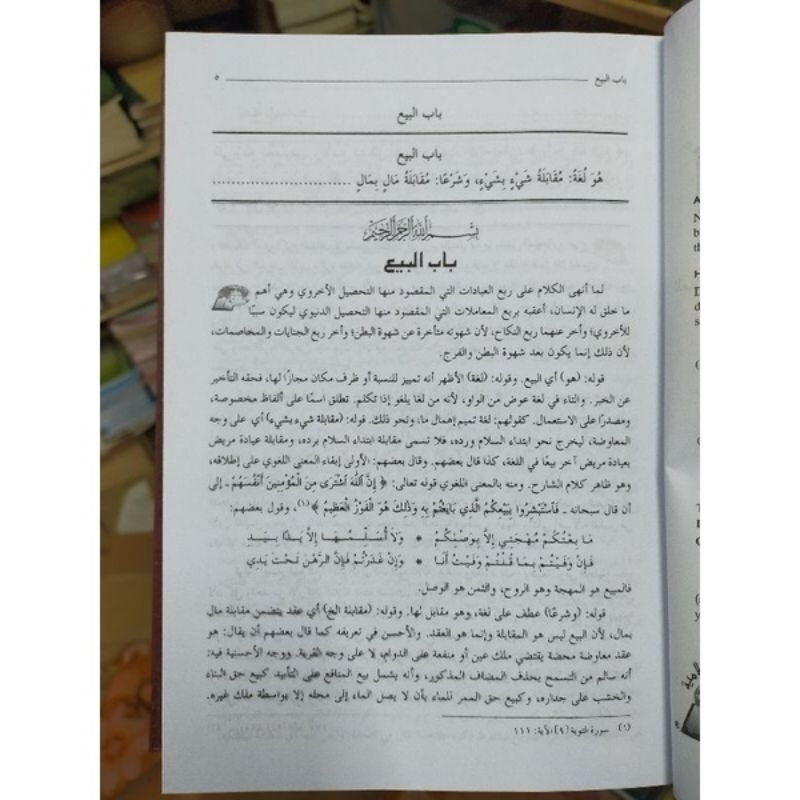 باب البيع ٥
باب البيع
باب البيع
هُوَ لُغَةً: مُقَابَلَةُ شَيْءٍ بِشَيْءٍ، وَشَرْعًا: مُقَابَلَةُ مَالٍ بِمَالٍ ..............................
بسم الله الرحمن الرحيم
باب البيع
لما أنهى الكلام على ربع العبادات التي المقصود منها التحصيل الأخروي وهي أهم
ما خلق له الإنسان، أعقبه بربع المعاملات التي المقصود منها التحصيل الدنيوي ليكون سببًا
للأخروي؛ وأخر عنهما ربع النكاح، لأن شهوته متأخرة عن شهوة البطن؛ وأخر ربع الجنايات والمخاصمات،
لأن ذلك إنما يكون بعد شهوة البطن والفرج.
قوله: (هو) أي البيع. وقوله: (لغة) الأظهر أنه تمييز للنسبة أو ظرف مكان مجازًا لها، فحقه التأخير
عن الخبر. والتاء في لغة عوض من الواو، لأنه من لغا يلغو إذا تكلم. تطلق اسمًا على ألفاظ مخصوصة،
ومصدرًا على الاستعمال. كقولهم: لغة تميم إهمال ما، ونحو ذلك. قوله: (مقابلة شيء بشيء) أي على وجه
المعاوضة، ليخرج نحو ابتداء السلام ورده، فلا تسمى مقابلة ابتداء السلام برده، ومقابلة عيادة مريض
بعيادة مريض آخر بيعًا في اللغة، كذا قال بعضهم. وقال بعضهم: الأولى إبقاء المعنى اللغوي على إطلاقه،
وهو ظاهر كلام الشارح. ومنه بالمعنى اللغوي قوله تعالى: ﴿ إِنَّ اللَّهَ اشْتَرَى مِنَ الْمُؤْمِنِينَ أَنْفُسَهُمْ ـ إلى
أن قال سبحانه ـ فَاسْتَبْشِرُوا بِبَيْعِكُمُ الَّذِي بَايَعْتُمْ بِهِ وَذَلِكَ هُوَ الْفَوْزُ الْعَظِيمُ ﴾(١)، وقول بعضهم:
مَا بِعْتُكُمْ مُهْجَتِي إِلاَّ بِوَصْلِكُمُ * وَلاَ أُسَلِّمُهَا إِلاَّ يَدًا بِيَدِ
فَإِنْ وَفَيْتُمْ بِمَا قُلْتُمْ وَفَيْتُ أَنَا * وَإِنْ غَدَرْتُمْ فَإِنَّ الرَّهْنَ تَحْتَ يَدِي
فالمبيع هو المهجة وهو الروح، والثمن هو الوصل.
قوله: (وشرعًا) عطف على لغة، وهو مقابل لها. وقوله: (مقابلة الخ) أي عقد يتضمن مقابلة مال
بمال، لأن البيع ليس هو المقابلة وإنما هو العقد. والأحسن في تعريفه كما قال بعضهم أن يقال: هو
عقد معاوضة محضة يقتضي ملك عين أو منفعة على الدوام، لا على وجه القربة. ووجه الأحسنية فيه:
أنه سالم من التسمح بحذف المضاف المذكور، وأنه يشمل بيع المنافع على التأبيد كبيع حق البناء
والخشب على جداره، وكبيع حق الممر للماء بأن لا يصل الماء إلى محله إلا بواسطة ملك غيره.
(١) سورة التوبة [٩] الآية: ١١١